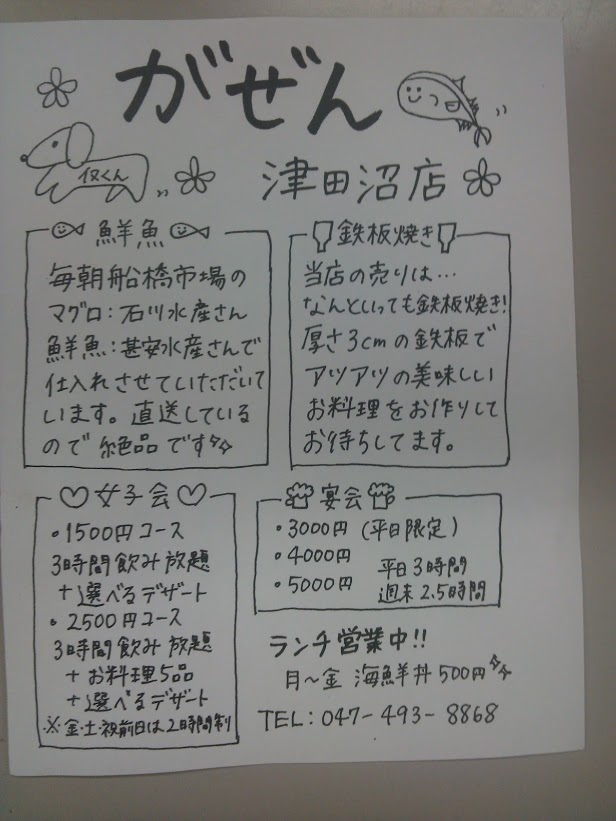 がぜん
津田沼店
鮮魚
毎朝船橋市場の
マグロ:石川水産さん
鮮魚:甚安水産さんで
仕入れさせていただいて
います。直送している
ので絶品です
鉄板焼き
当店の売りは…
なんといっても鉄板焼き!
厚さ3cmの鉄板で
アツアツの美味しい
お料理をお作りして
お待ちしてます。
女子会
・1500円コース
3時間飲み放題
+選べるデザート
・2500円コース
3時間飲み放題
+お料理5品
+選べるデザート
※金・土・祝前日は2時間制
宴会
・3000円(平日限定)
・4000円
・5000円
平日3時間
週末2.5時間
ランチ営業中!!
月〜金 海鮮丼500円
TEL:047-493-8868